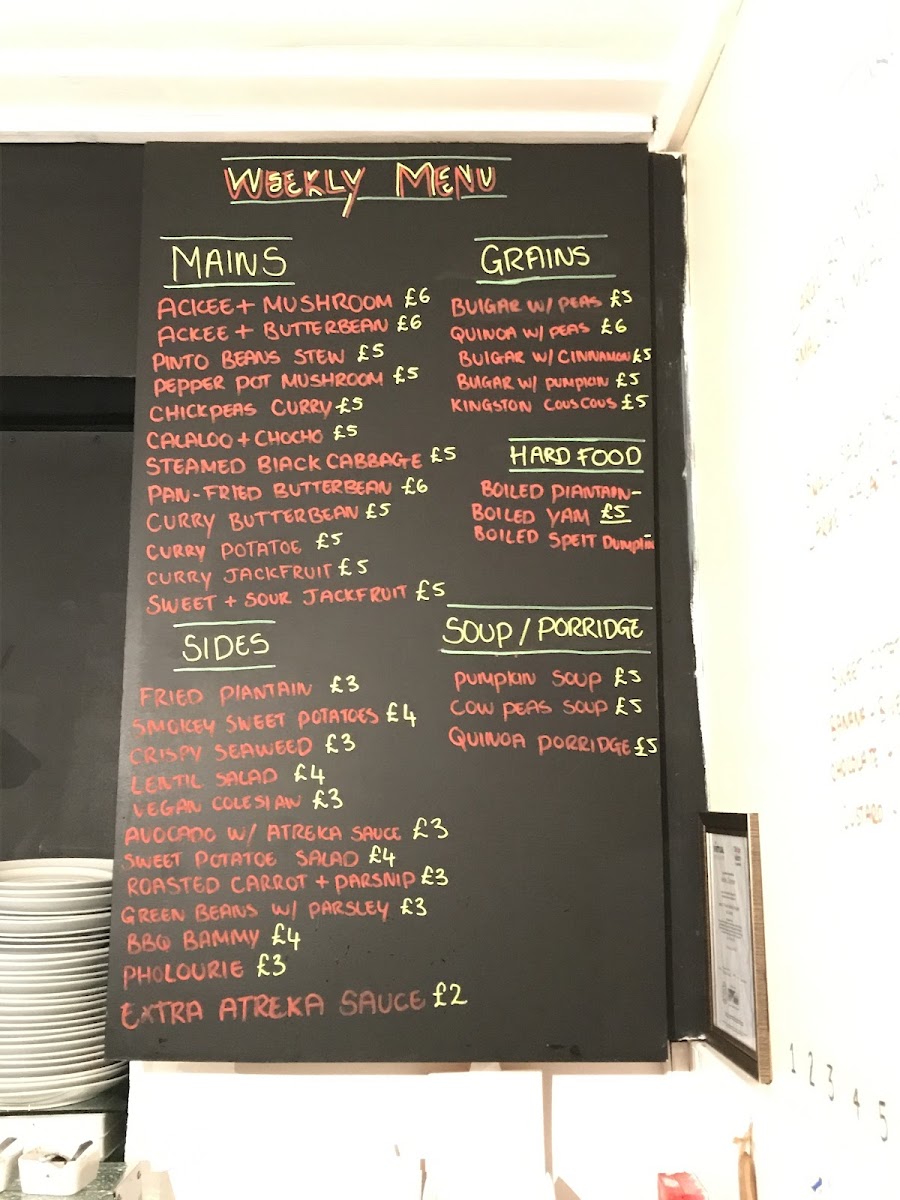 WEEKLY MENU
MAINS
ACKEE + MUSHROOM £6
ACKEE + BUTTERBEAN £6
PINTO BEANS STEW £5
PEPPER POT MUSHROOM £5
CHICKPEAS CURRY £5
CALALOO + CHOCHO £5
STEAMED BLACK CABBAGE £5
PAN-FRIED BUTTERBEAN £6
CURRY BUTTERBEAN £5
CURRY POTATOE £5
CURRY JACKFRUIT £5
SWEET + SOUR JACKFRUIT £5
SIDES
FRIED PLANTAIN £3
SMOKEY SWEET POTATOES £4
CRISPY SEAWEED £3
LENTIL SALAD £4
VEGAN COLESLAW £3
AVOCADO W/ ATREKA SAUCE £3
SWEET POTATOE SALAD £4
ROASTED CARROT + PARSNIP £3
GREEN BEANS W/ PARSLEY £3
BBQ BAMMY £4
PHOLOURIE £3
EXTRA ATREKA SAUCE £2
GRAINS
BULGAR W/ PEAS £5
QUINOA W/ PEAS £6
BULGAR W/ CINNAMON £5
BULGAR W/ PUMPKIN £5
KINGSTON COUSCOUS £5
HARD FOOD
BOILED PLANTAIN-
BOILED YAM £5
BOILED SPELT DUMPLIN
SOUP / PORRIDGE
PUMPKIN SOUP £5
COW PEAS SOUP £5
QUINOA PORRIDGE £5
CHOCOLATE -
CUSTARD -
1 2 3 4 5